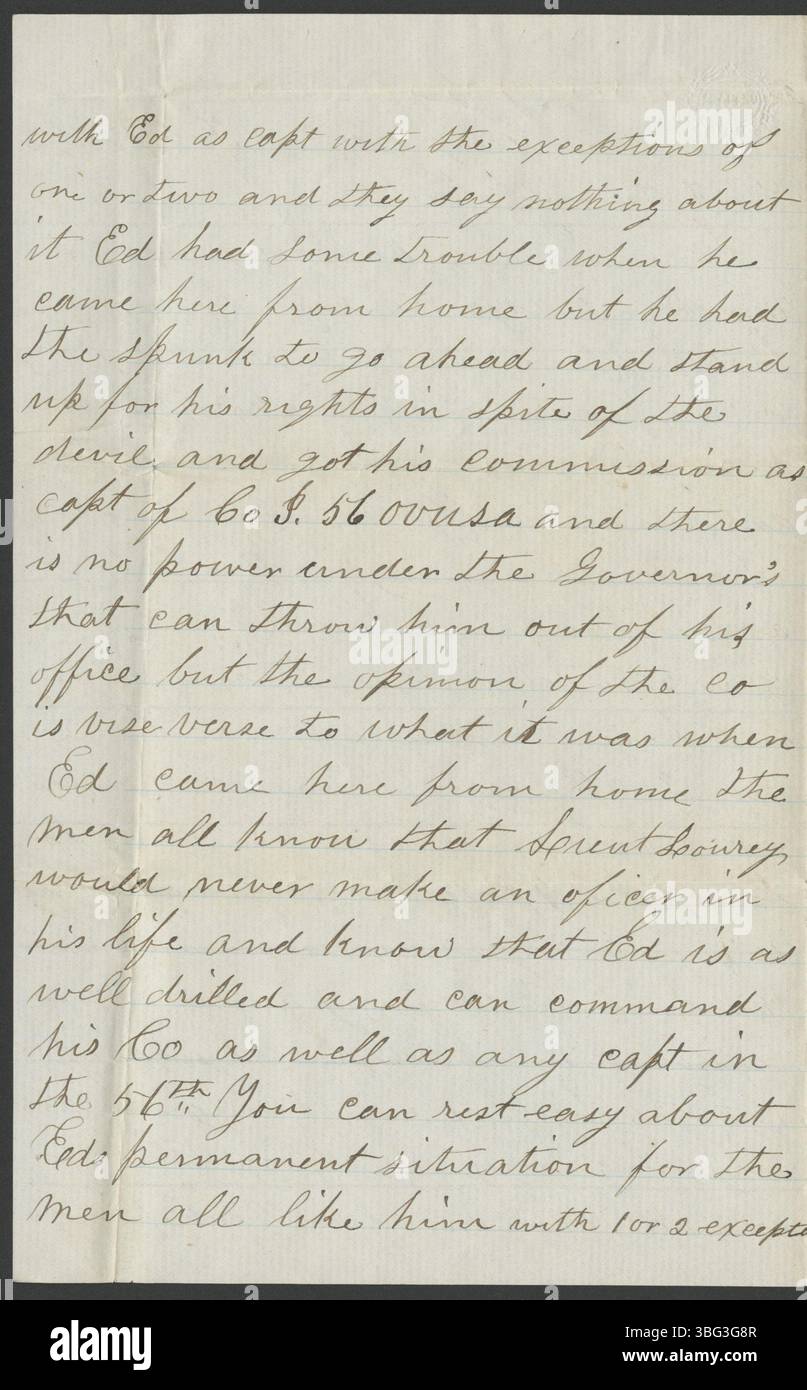 with Ed as capt with the exceptions of
one or two and they say nothing about
it Ed had some trouble when he
came here from home but he had
the spunk to go ahead and stand
up for his rights in spite of the
devil and got his commission as
capt of Co I. 56 OVUSA and there
is no power under the Governor's
that can throw him out of his
office but the opinion of the co
is vise verse to what it was when
Ed came here from home the
men all know that Lieut Lowrey
would never make an oficer in
his life and know that Ed is as
well drilled and can command
his Co as well as any capt in
the 56th You can rest easy about
Eds permanent situation for the
men all like him with 1 or 2 excepti
alamy
Image ID: 3BG3G8R
www.alamy.com